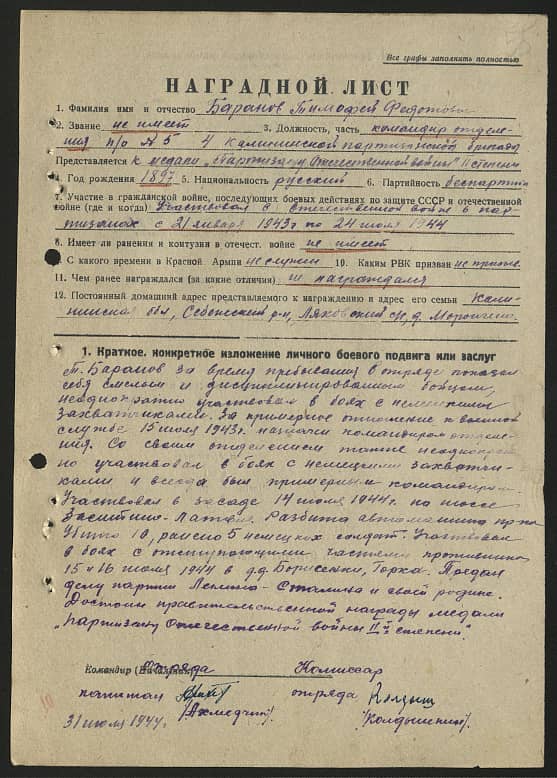 Все графы заполнить полностью
НАГРАДНОЙ ЛИСТ
1. Фамилия имя и отчество Баранов Тимофей Федотович
2. Звание не имеет 3. Должность, часть командир отделе-
ния п/о №5 4 Калининской партизанской бригады
Представляется к медали „Партизану Отечественной войны" II степени
4. Год рождения 1897 5. Национальность русский 6. Партийность беспартий
7. Участие в гражданской войне, последующих боевых действиях по защите СССР и отечественной
войне (где и когда) Участвовал в отечественной войне в пар-
тизанах с 21 января 1943 г по 24 июля 1944
8. Имеет ли ранения и контузии в отечест. войне не имеет
9. С какого времени в Красной Армии не служил 10. Каким РВК призван не призыв.
11. Чем ранее награждался (за какие отличия) не награждался
12. Постоянный домашний адрес представляемого к награждению и адрес его семьи Кали-
нинская обл, Себежский р-н, Ляховский с/с, д.
1. Краткое, конкретное изложение личного боевого подвига или заслуг
Т. Баранов за время пребывания в отряде показал
себя смелым и дисциплинированным бойцом,
неоднократно участвовал в боях с немецкими
захватчиками. За примерное отношение к военной
службе 15 июля 1943 г. назначен командиром отделе-
ния. Со своим отделением также неоднократ-
но участвовал в боях с немецкими захватчи-
ками и всегда был примерным командиром
Участвовал в засаде 14 июля 1944 г. на шоссе
Заситино-Латвия. Разбита автомашина пр-ка
Убито 10, ранено 5 немецких солдат. Участвовал
в боях с отступающими частями противника
15 и 16 июля 1944 в д.д. Борисенки, Горка. Предан
делу партии Ленина-Сталина и своей родине.
Достоин правительственной награды медали
„Партизану Отечественной войны II й степени".
Командир (Начальник) отряда Комиссар
капитан отряда
/Ахмедчин/
31 июля 1944 г.